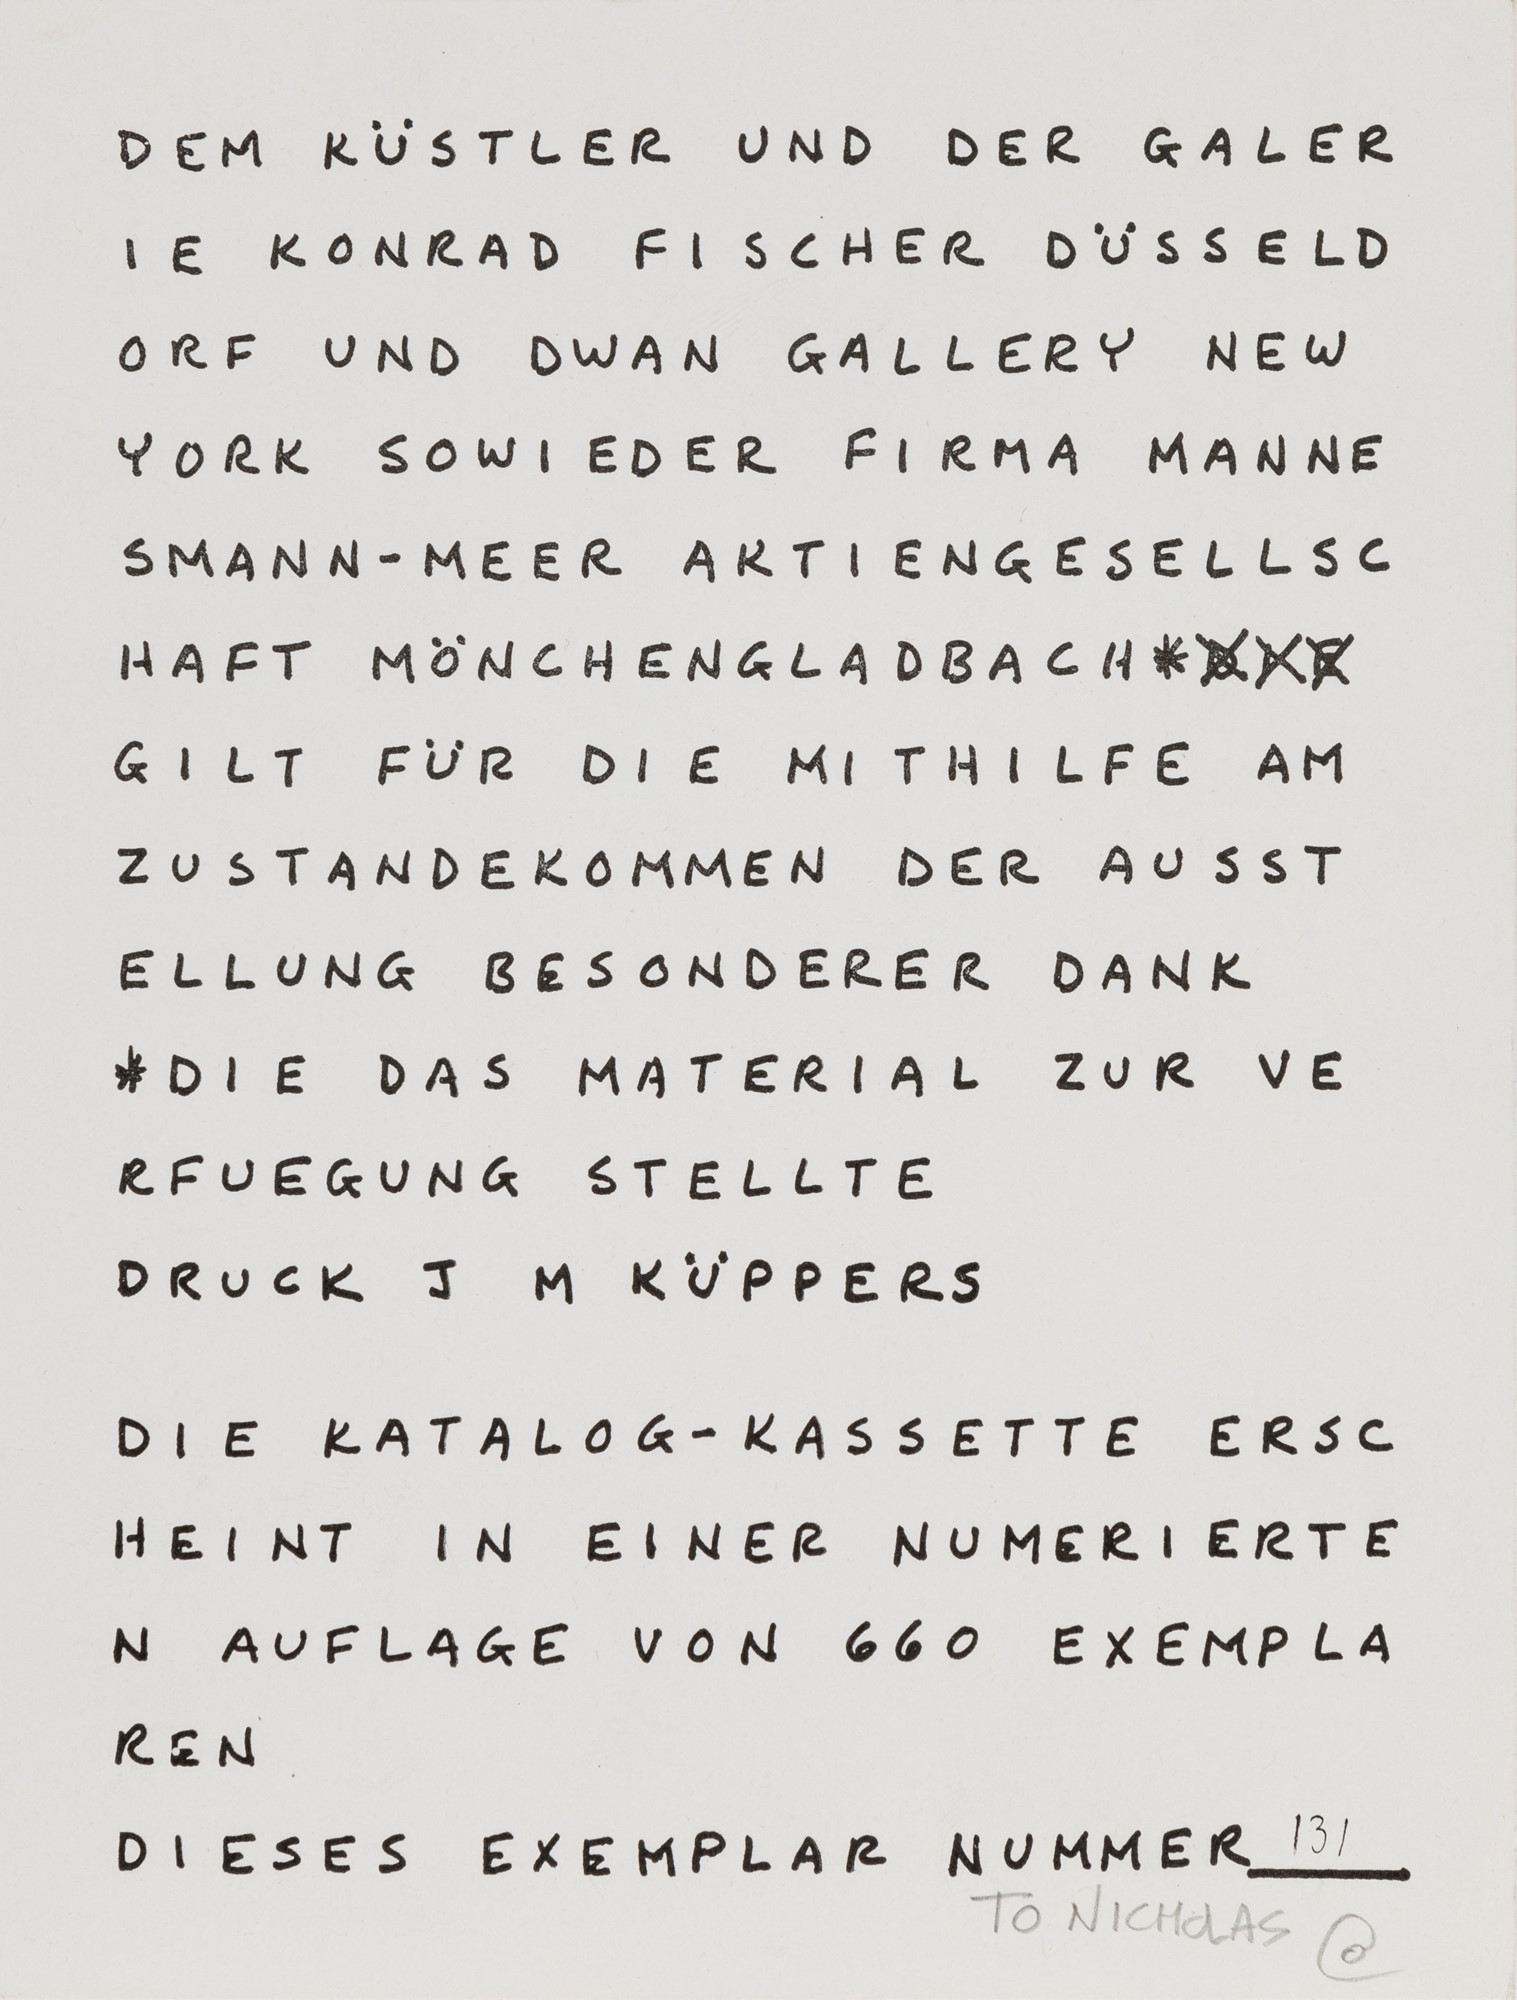 DEM KÜSTLER UND DER GALER
IE KONRAD FISCHER DÜSSELD
ORF UND DWAN GALLERY NEW
YORK SOWIEDER FIRMA MANNE
SMANN-MEER AKTIENGESELLSC
HAFT MÖNCHENGLADBACH*
GILT FÜR DIE MITHILFE AM
ZUSTANDEKOMMEN DER AUSST
ELLUNG BESONDERER DANK
*DIE DAS MATERIAL ZUR VE
RFUEGUNG STELLTE
DRUCK J M KÜPPERS
DIE KATALOG-KASSETTE ERSC
HEINT IN EINER NUMERIERTE
N AUFLAGE VON 660 EXEMPLA
REN
DIESES EXEMPLAR NUMMER 131
TO NICHOLAS